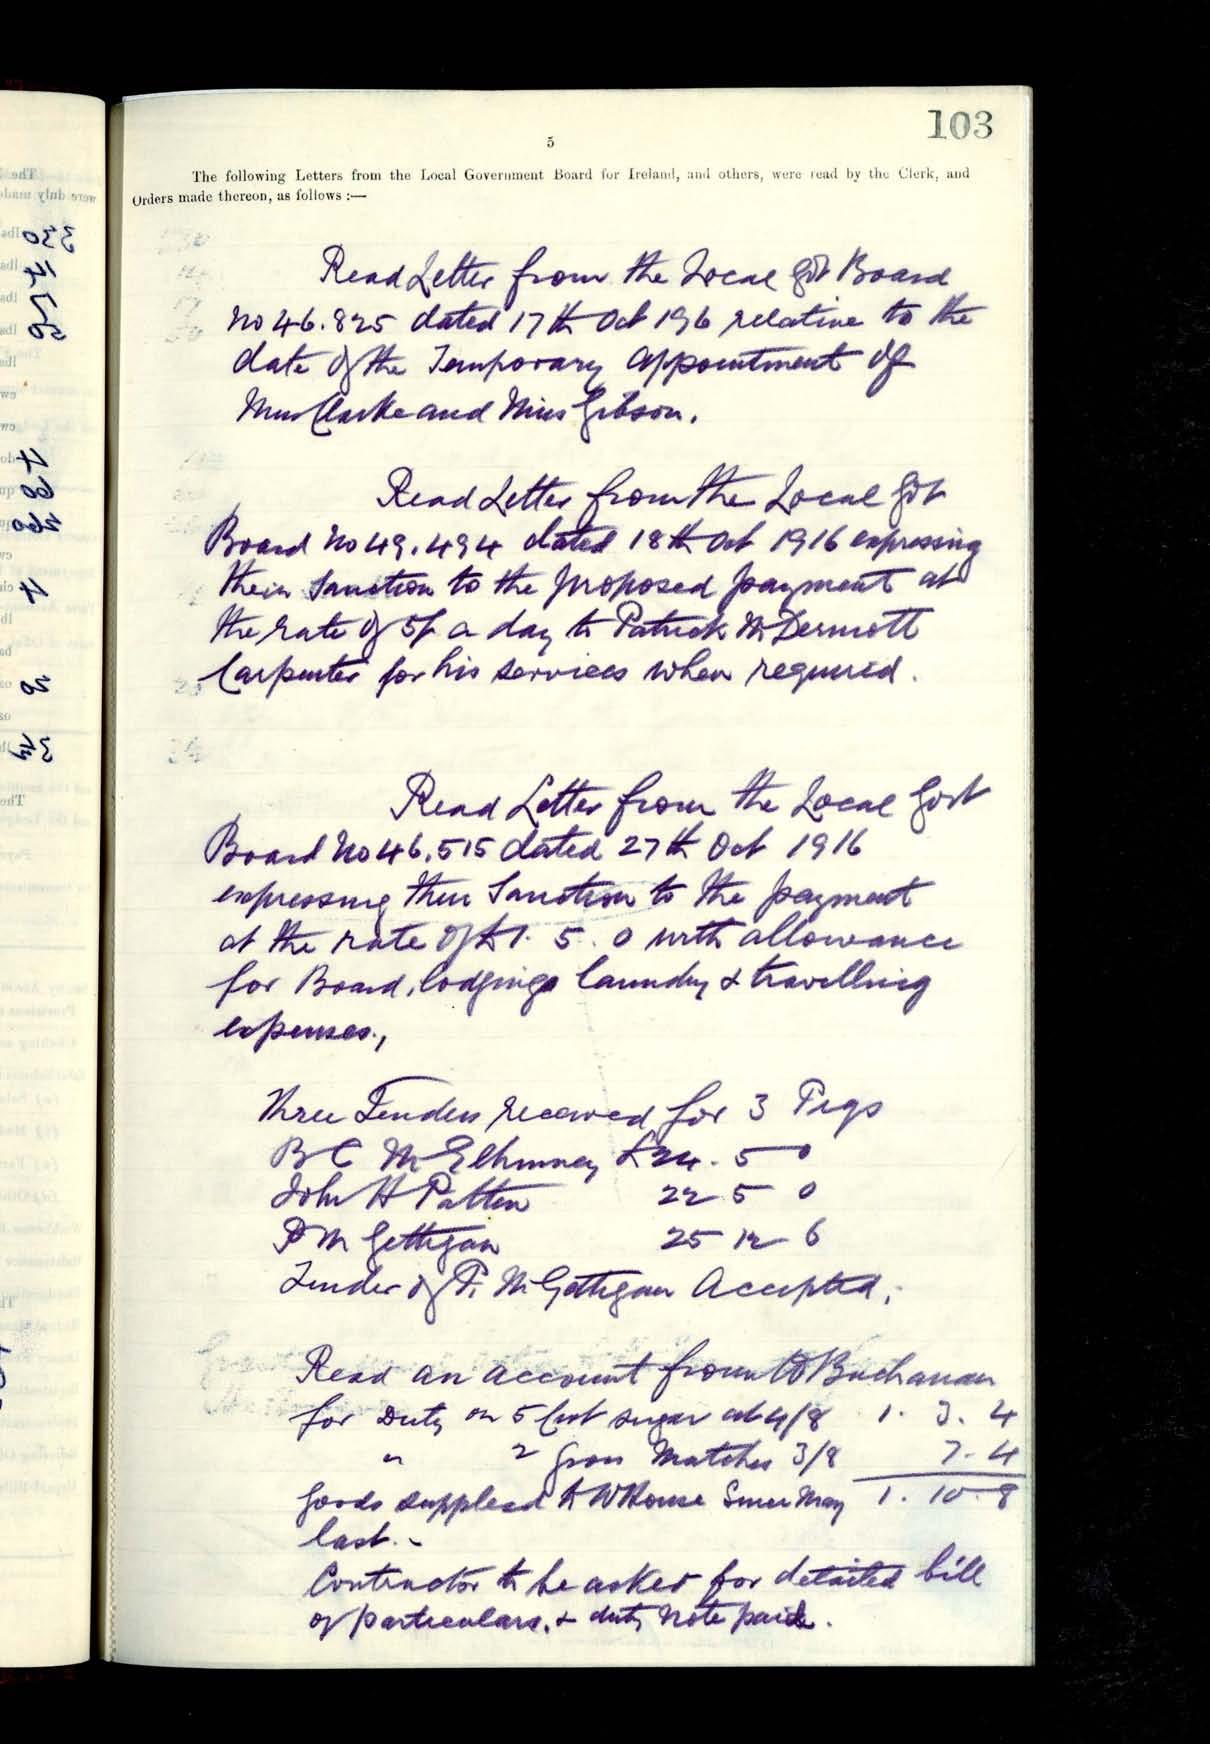 103
5
The following Letters from the Local Government Board for Ireland, and others, were read by the Clerk, and
Orders made thereon, as follows :—
Read Letter from the Local Gvt Board
No 46.825 dated 17th Oct 196 relative to the
date of the Temporary appointment of
Miss Clarke and Miss Gibson.
Read Letter from the Local Gvt
Board No 49.494 dated 18th Oct 1916 expressing
their Sanction to the proposed payment at
the rate of 5/- a day to Patrick McDermott
Carpenter for his services when required.
Read Letter from the Local Govt
Board No 46.515 dated 27th Oct 1916
expressing their Sanction to the payment
at the rate of £1. 5. 0 with allowance
for Board, lodgings laundry & travelling
expenses.,
Three Tenders received for 3 Pigs
B C McElhinney £24. 5 0
John H Patten 22 5 0
P McGettigan 25 12 6
Tender of P. McGettigan Accepted.
Read an account from Buchanan
for Duty on 5 Cwt sugar at 4/8 1. 3. 4
" 2 Gross Matches 3/8 7. 4
Goods supplied to WHouse Since May 1. 10. 8
last. -
Contractor to be asked for detailed bill
of particulars. & duty note paid.
330
14
17
50
4
260
4
20
34